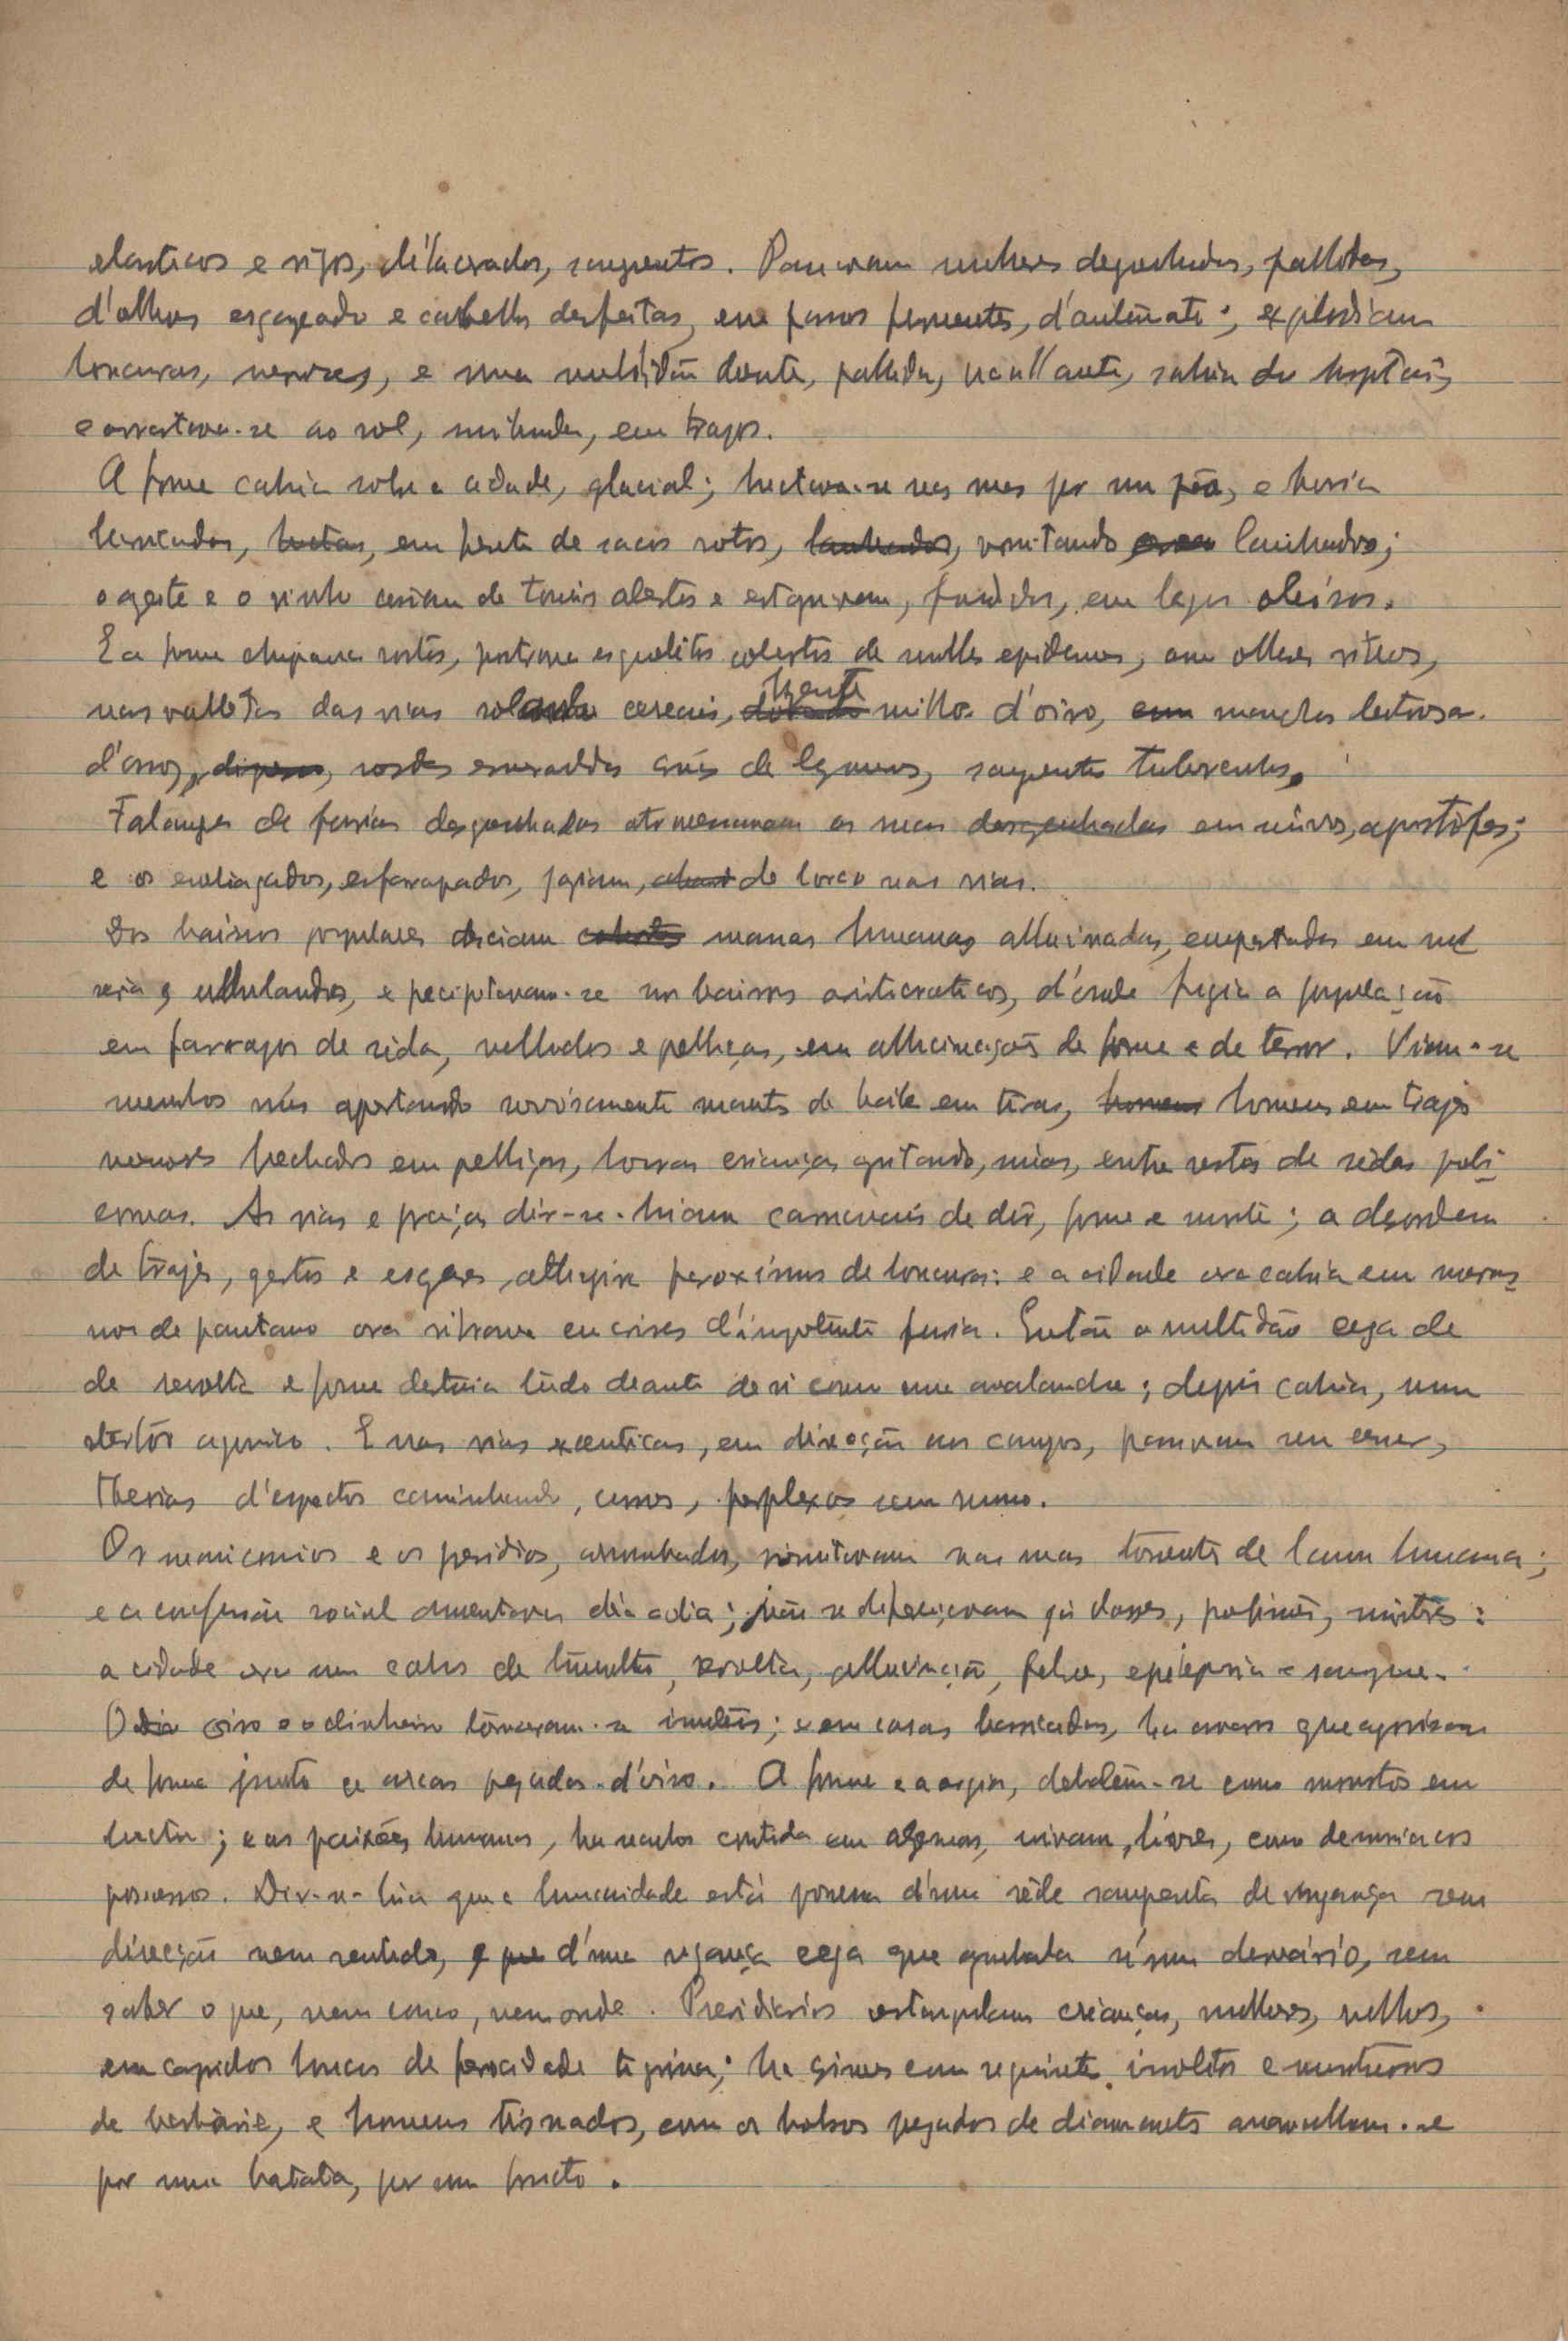 elasticos e rijos, dilacerados, sangrentos. Passavam mulheres desgrenhadas, pallidas,
d'olhos esgazeados e cabellos desfeitos, em passos frementes, d'automato; explodiam
loucuras, nevroses, e uma multidão doente, pallida, vacillante, sahia dos hospitaes,
e arrastava-se ao sol, em trapos.
A fome cahia sobre a cidade, glacial; luctava-se nas ruas por um pão, e havia
barricadas, luctas, em frente de sacos rotos, vomitando
o azeite e o vinho corriam de toneis abertos e estagnavam, fundidos, em lagos oleosos.
E a fome chupava rostos, prostrava esqueletos cobertos de molles epidermes, com olhares vitreos,
nas valletas das ruas cereais, dourado milho d'oiro, com manchas leitosas
d'arroz, dispersos, esmeraldas crús de legumes, sangrentos tuberculos.
Falanges de furias desgrenhadas atravessavam as ruas desgrenhadas em uivos, apostrofes;
e os embriagados, esfarrapados, jaziam, de borco nas ruas.
Dos bairros populares desciam cobertos massas humanas allucinadas, empastadas em mi-
seria, ullulandos, e precipitavam-se nos bairros aristocraticos, d'onde fugia a população
em farrapos de seda, velludos e pelliças, em allucinação de fome e de terror. Viam-se
membros nús apertando nervosamente mantos de baile em tiras, homens homens em trajes
menores fechados em pelliças, louras crianças gritando, núas, entre restos de sedas poli-
cromas. As ruas e praças dir-se-hiam carnavais de dôr, fome e morte; a desordem
de trajes, gestos e esgares, attingira paroxismos de loucura: e a cidade ora cahia em maras-
mos de pantano ora vibrava em crises d'impotente furia. Então a multidão cega de
de revolta e fome destruia tudo deante de si como uma avalanche; depois cahia, num
stertôr agonico. E nas ruas excentricas, em direcção aos campos, passavam sem cessar,
theorias d'espectros caminhando, curvos, perplexos sem rumo.
Os manicomios e os presidios, arrombados, vomitavam nas ruas torrentes de lama humana;
e a confusão social aumentava dia a dia; não se diferençavam já classes, profissões, misteres:
a cidade era um cahos de tumulto, revolta, allucinação, febre, epilepsia e sangue.
O oiro e o dinheiro tornaram-se inuteis; e em casas barricadas, ha avaros que agonisam
de fome junto de arcas pejadas d'oiro. A fome e a orgia, debatem-se como monstros em
lucta; e as paixões humanas, ha seculos contidas em algemas, uivam, livres, como demoniacos
possessos. Dir-se-hia que a humanidade está possessa d'uma sêde sangrenta de vingança sem
direcção nem sentido, e que d'uma vigança cega que arrebata n'um desvairio, sem
saber o que, nem como, nem onde. Presidiarios estrangulam crianças, mulheres, velhos,
em caprichos loucos de ferocidade tigrina; ha crimes com requintes insolitos e monstruosos
de barbárie, e homens tisnados, com os bolsos pejados de diamantes anavalham-se
por uma batata, por um fructo.